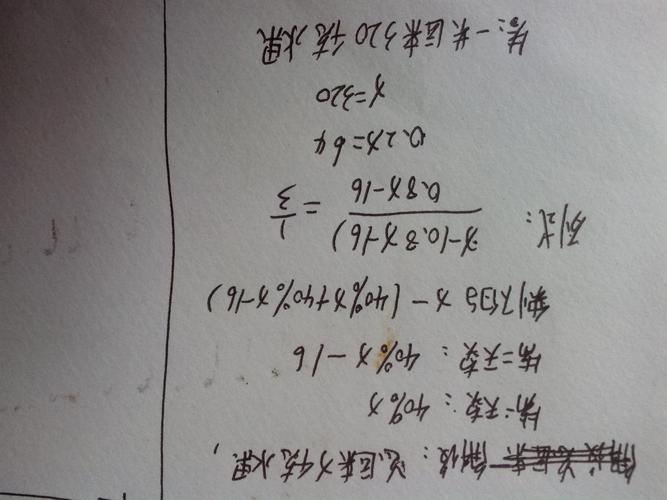 解设：总运来x千克水果，
第一天卖：40%x
第二天卖：40%x-16
剩下的 x-(40%x+40%x-16)
列式：x-(0.8x-16)/0.8x-16=1/3
0.2x=64
x=320
答：一共运来320千克水果